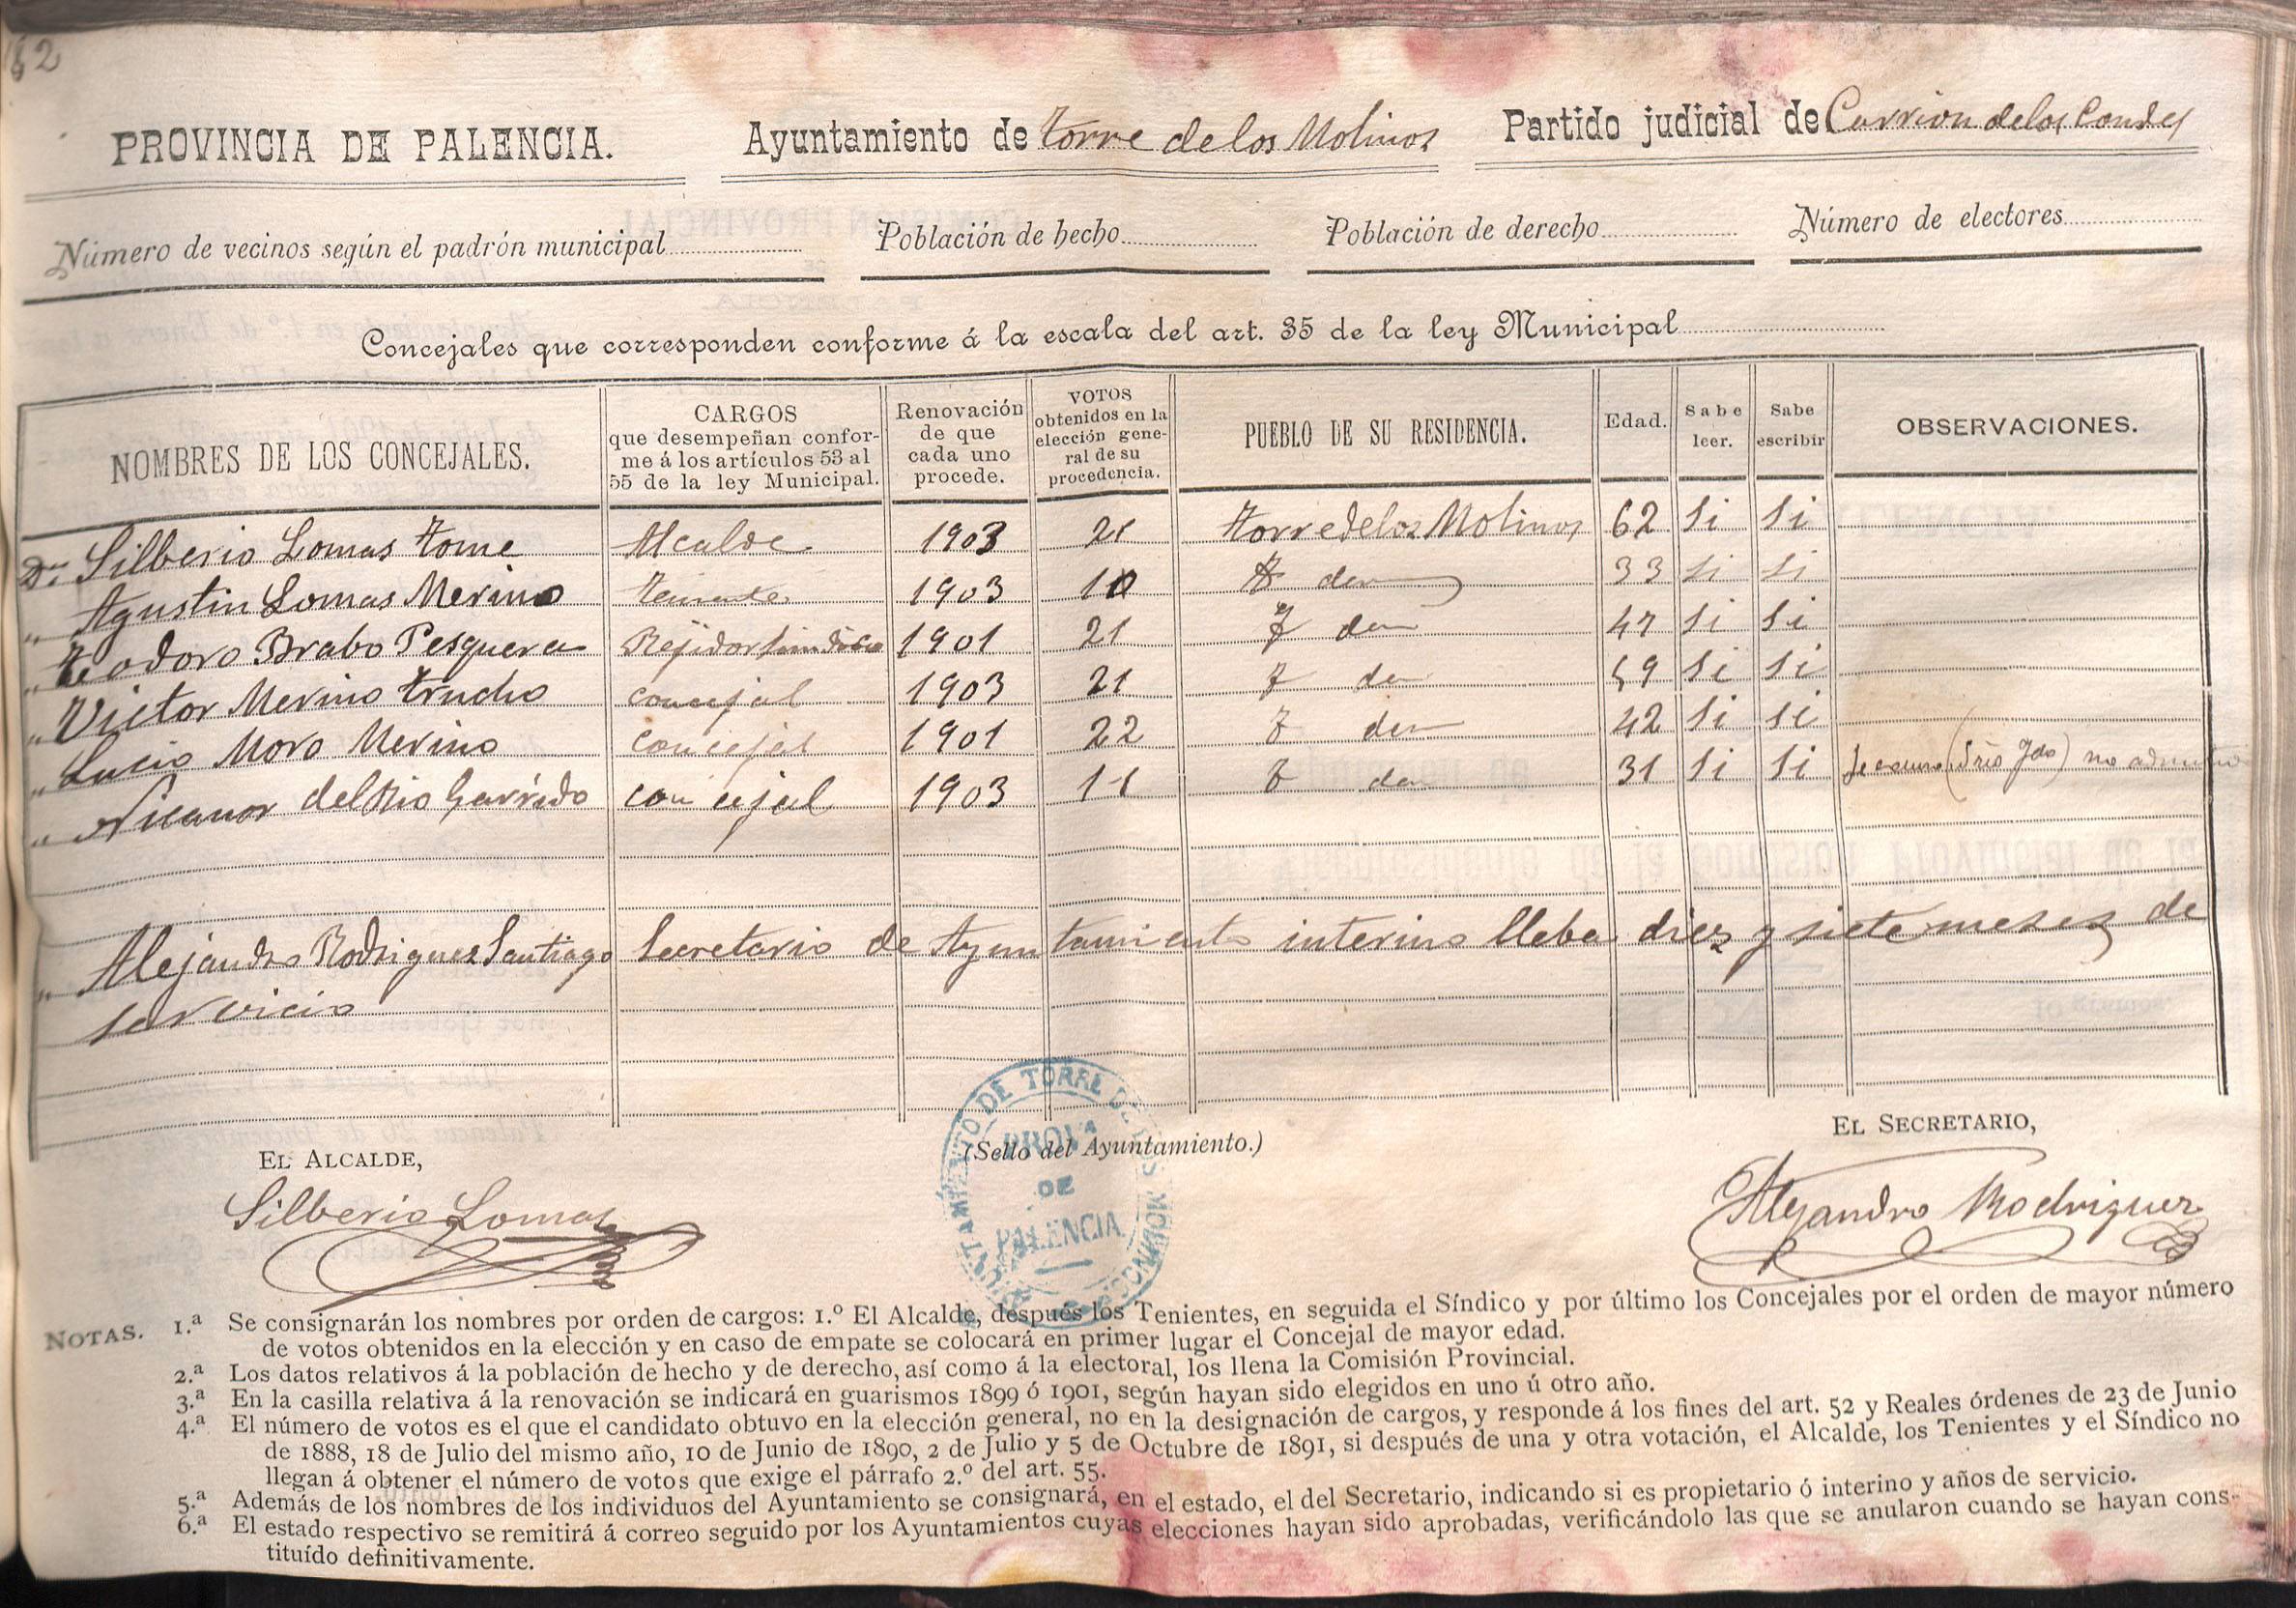 62
PROVINCIA DE PALENCIA. Ayuntamiento de torre de los Molinos Partido judicial de Carrion de los Condes
Número de vecinos según el padrón municipal Población de hecho Población de derecho Número de electores
Concejales que corresponden conforme á la escala del art. 35 de la ley Municipal
NOMBRES DE LOS CONCEJALES. CARGOS que desempeñan conforme á los artículos 53 al 55 de la ley Municipal. Renovación de que cada uno procede. VOTOS obtenidos en la elección general de su procedencia. PUEBLO DE SU RESIDENCIA. Edad. Sabe leer. Sabe escribir OBSERVACIONES.
Dn Silberio Lomas tome Alcalde 1903 21 torre de los Molinos 62 Si Si
" Agustin Lomas Merino teniente 1903 10 Y dem 33 Si Si
" teodoro Brabo Pesquera Rejidor Sindico 1901 21 Y dem 47 Si Si
" Victor Merino trucho concejal 1903 21 Y dem 59 Si Si
" Lucio Moro Merino concejal 1901 22 Y dem 42 Si Si
" Nicanor del Rio Garrido concejal 1903 11 Y dem 31 Si Si no
" Alejandro Rodriguez Santiago Secretario de Ayuntamiento interino lleba diez y siete meses de
servicio
EL ALCALDE, (Sello del Ayuntamiento.) EL SECRETARIO,
Silberio Lomas Alejandro Rodriguez
AYUNTAMIENTO DE TORRE DE LOS MOLINOS
PROVA
DE
PALENCIA
NOTAS. 1.ª Se consignarán los nombres por orden de cargos: 1.º El Alcalde, después los Tenientes, en seguida el Síndico y por último los Concejales por el orden de mayor número
de votos obtenidos en la elección y en caso de empate se colocará en primer lugar el Concejal de mayor edad.
2.ª Los datos relativos á la población de hecho y de derecho, así como á la electoral, los llena la Comisión Provincial.
3.ª En la casilla relativa á la renovación se indicará en guarismos 1899 ó 1901, según hayan sido elegidos en uno ú otro año.
4.ª El número de votos es el que el candidato obtuvo en la elección general, no en la designación de cargos, y responde á los fines del art. 52 y Reales órdenes de 23 de Junio
de 1888, 18 de Julio del mismo año, 10 de Junio de 1890, 2 de Julio y 5 de Octubre de 1891, si después de una y otra votación, el Alcalde, los Tenientes y el Síndico no
llegan á obtener el número de votos que exige el párrafo 2.º del art. 55.
5.ª Además de los nombres de los individuos del Ayuntamiento se consignará, en el estado, el del Secretario, indicando si es propietario ó interino y años de servicio.
6.ª El estado respectivo se remitirá á correo seguido por los Ayuntamientos cuyas elecciones hayan sido aprobadas, verificándolo las que se anularon cuando se hayan cons-
tituído definitivamente.